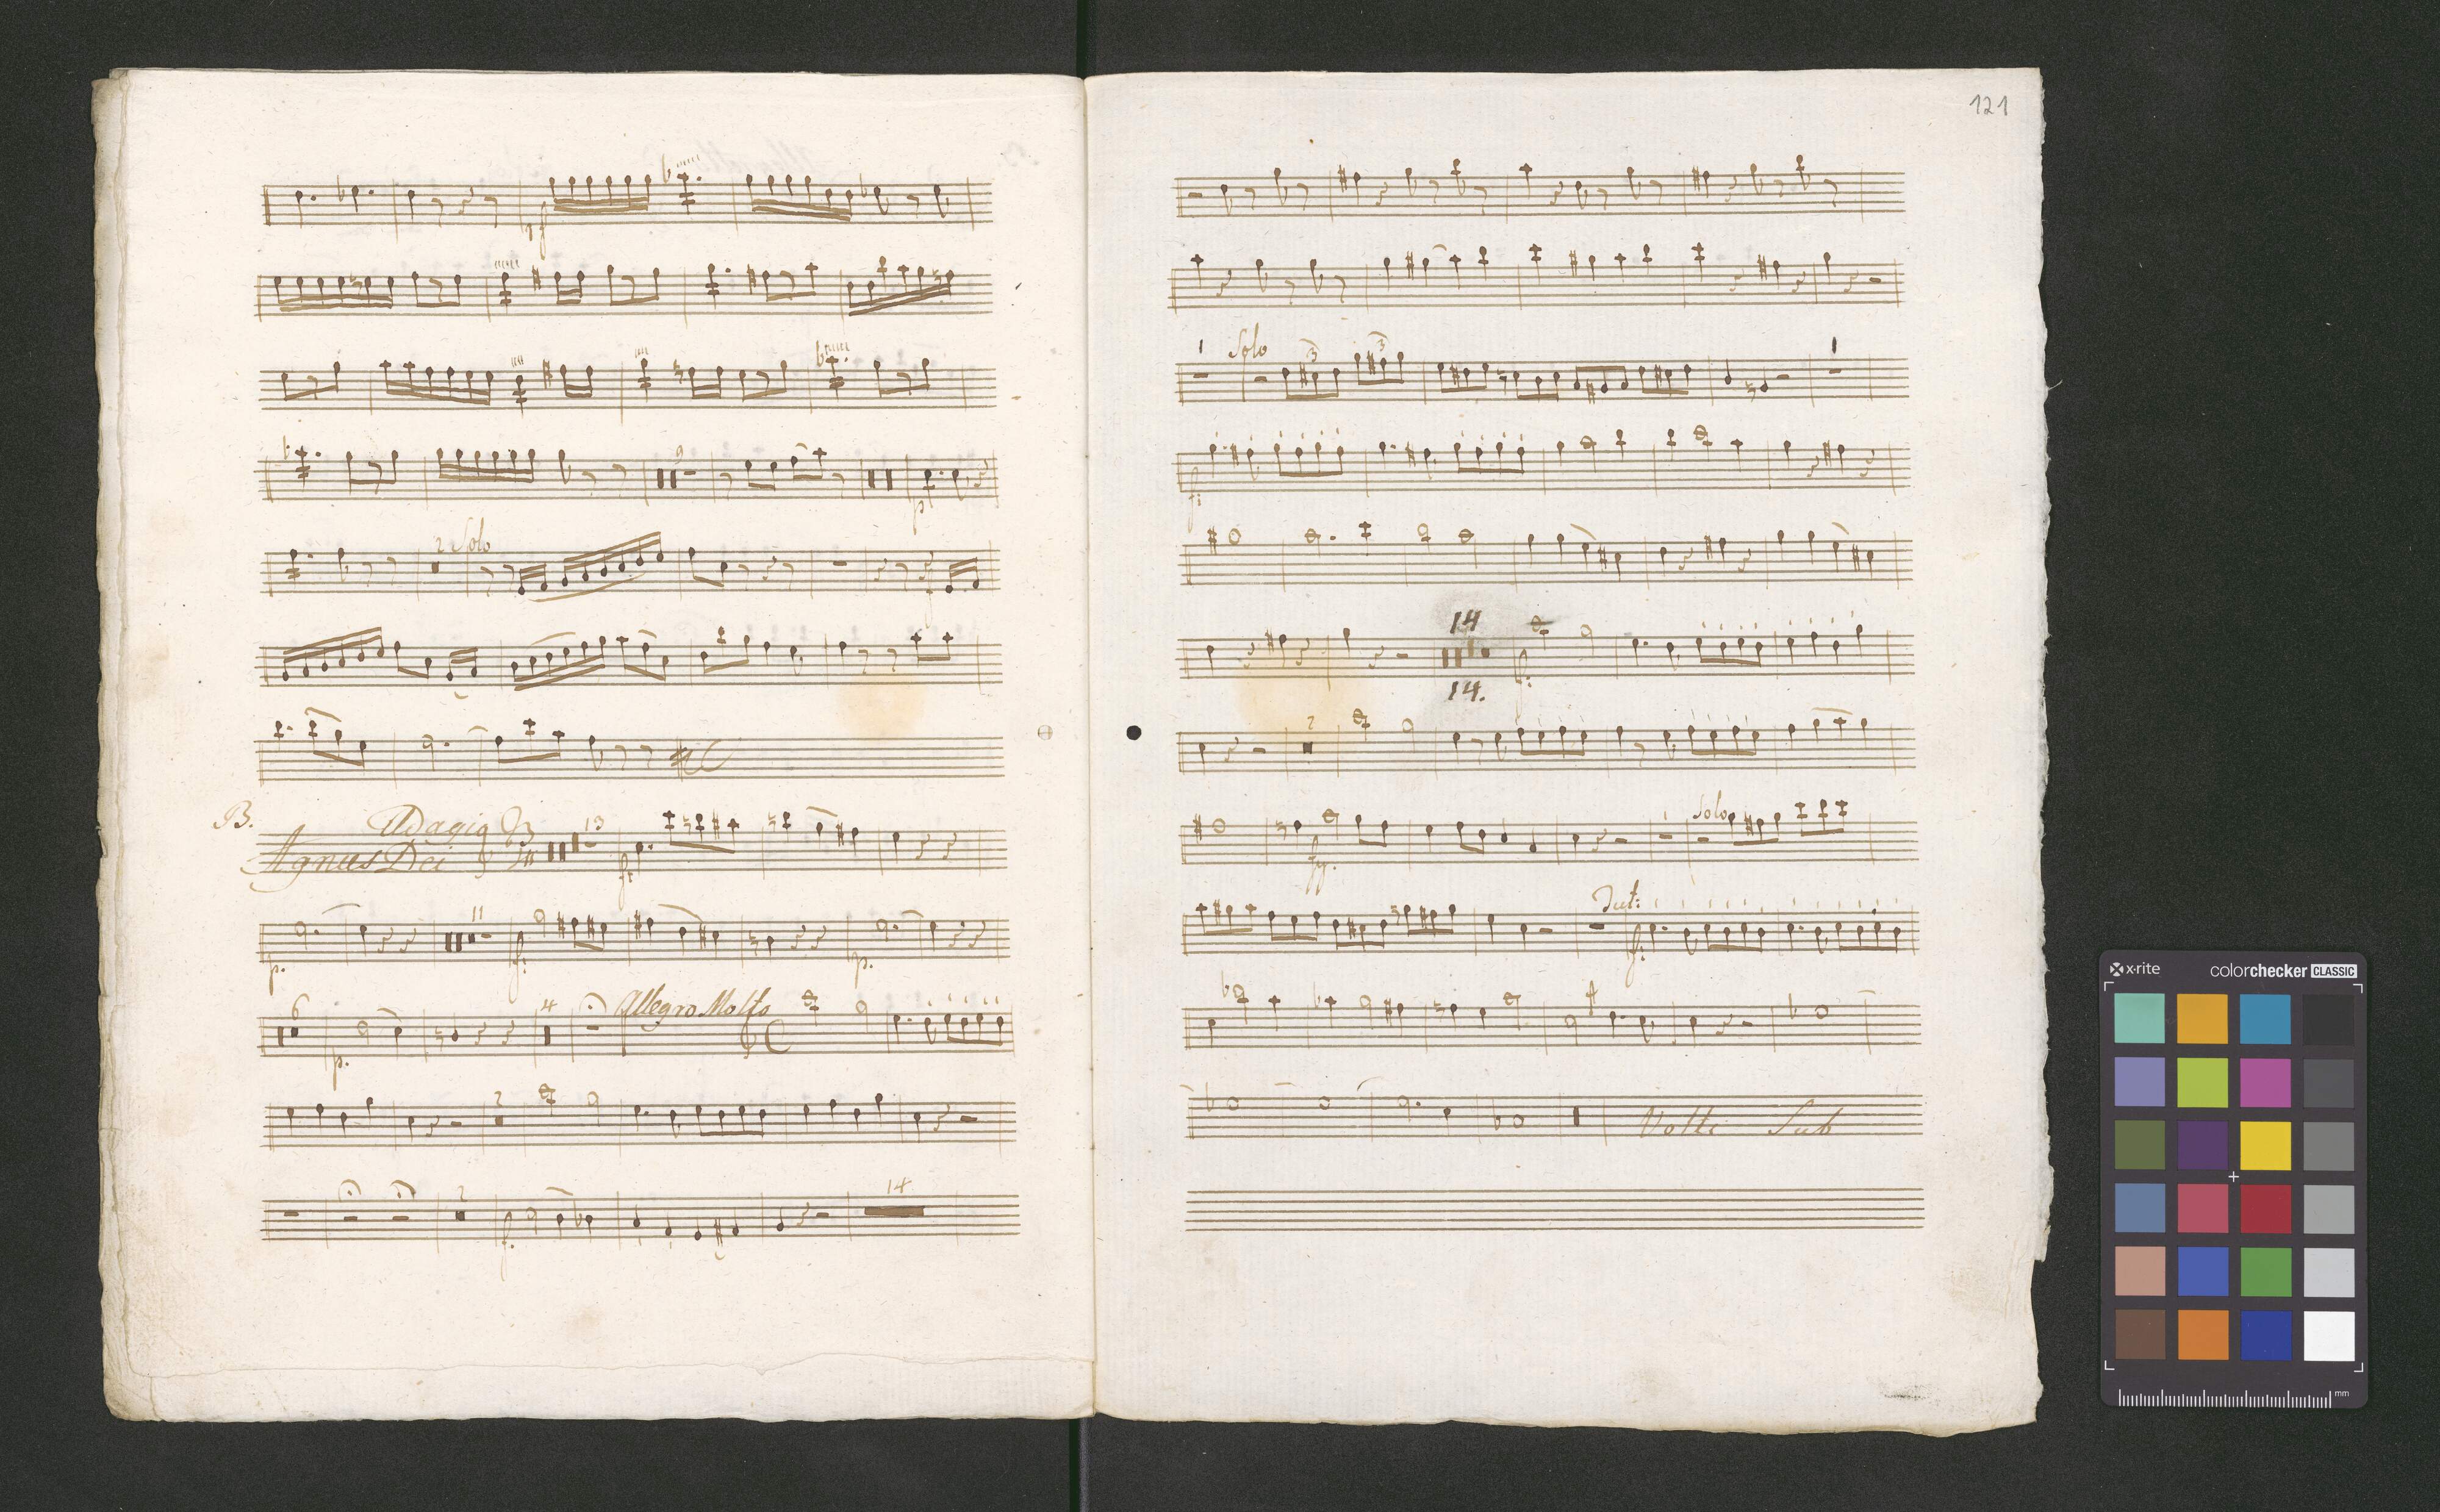 2 Solo
B. Adagio 3/4 13
Agnus Dei
p. 11 f: p.
6 p. 4 Allegro Molto
2
2 f. 14
121
1 Solo 3 3 1
f:
14 f:
14.
2
Solo
Tut: f:
Volti Sub
x·rite colorchecker CLASSIC
mm